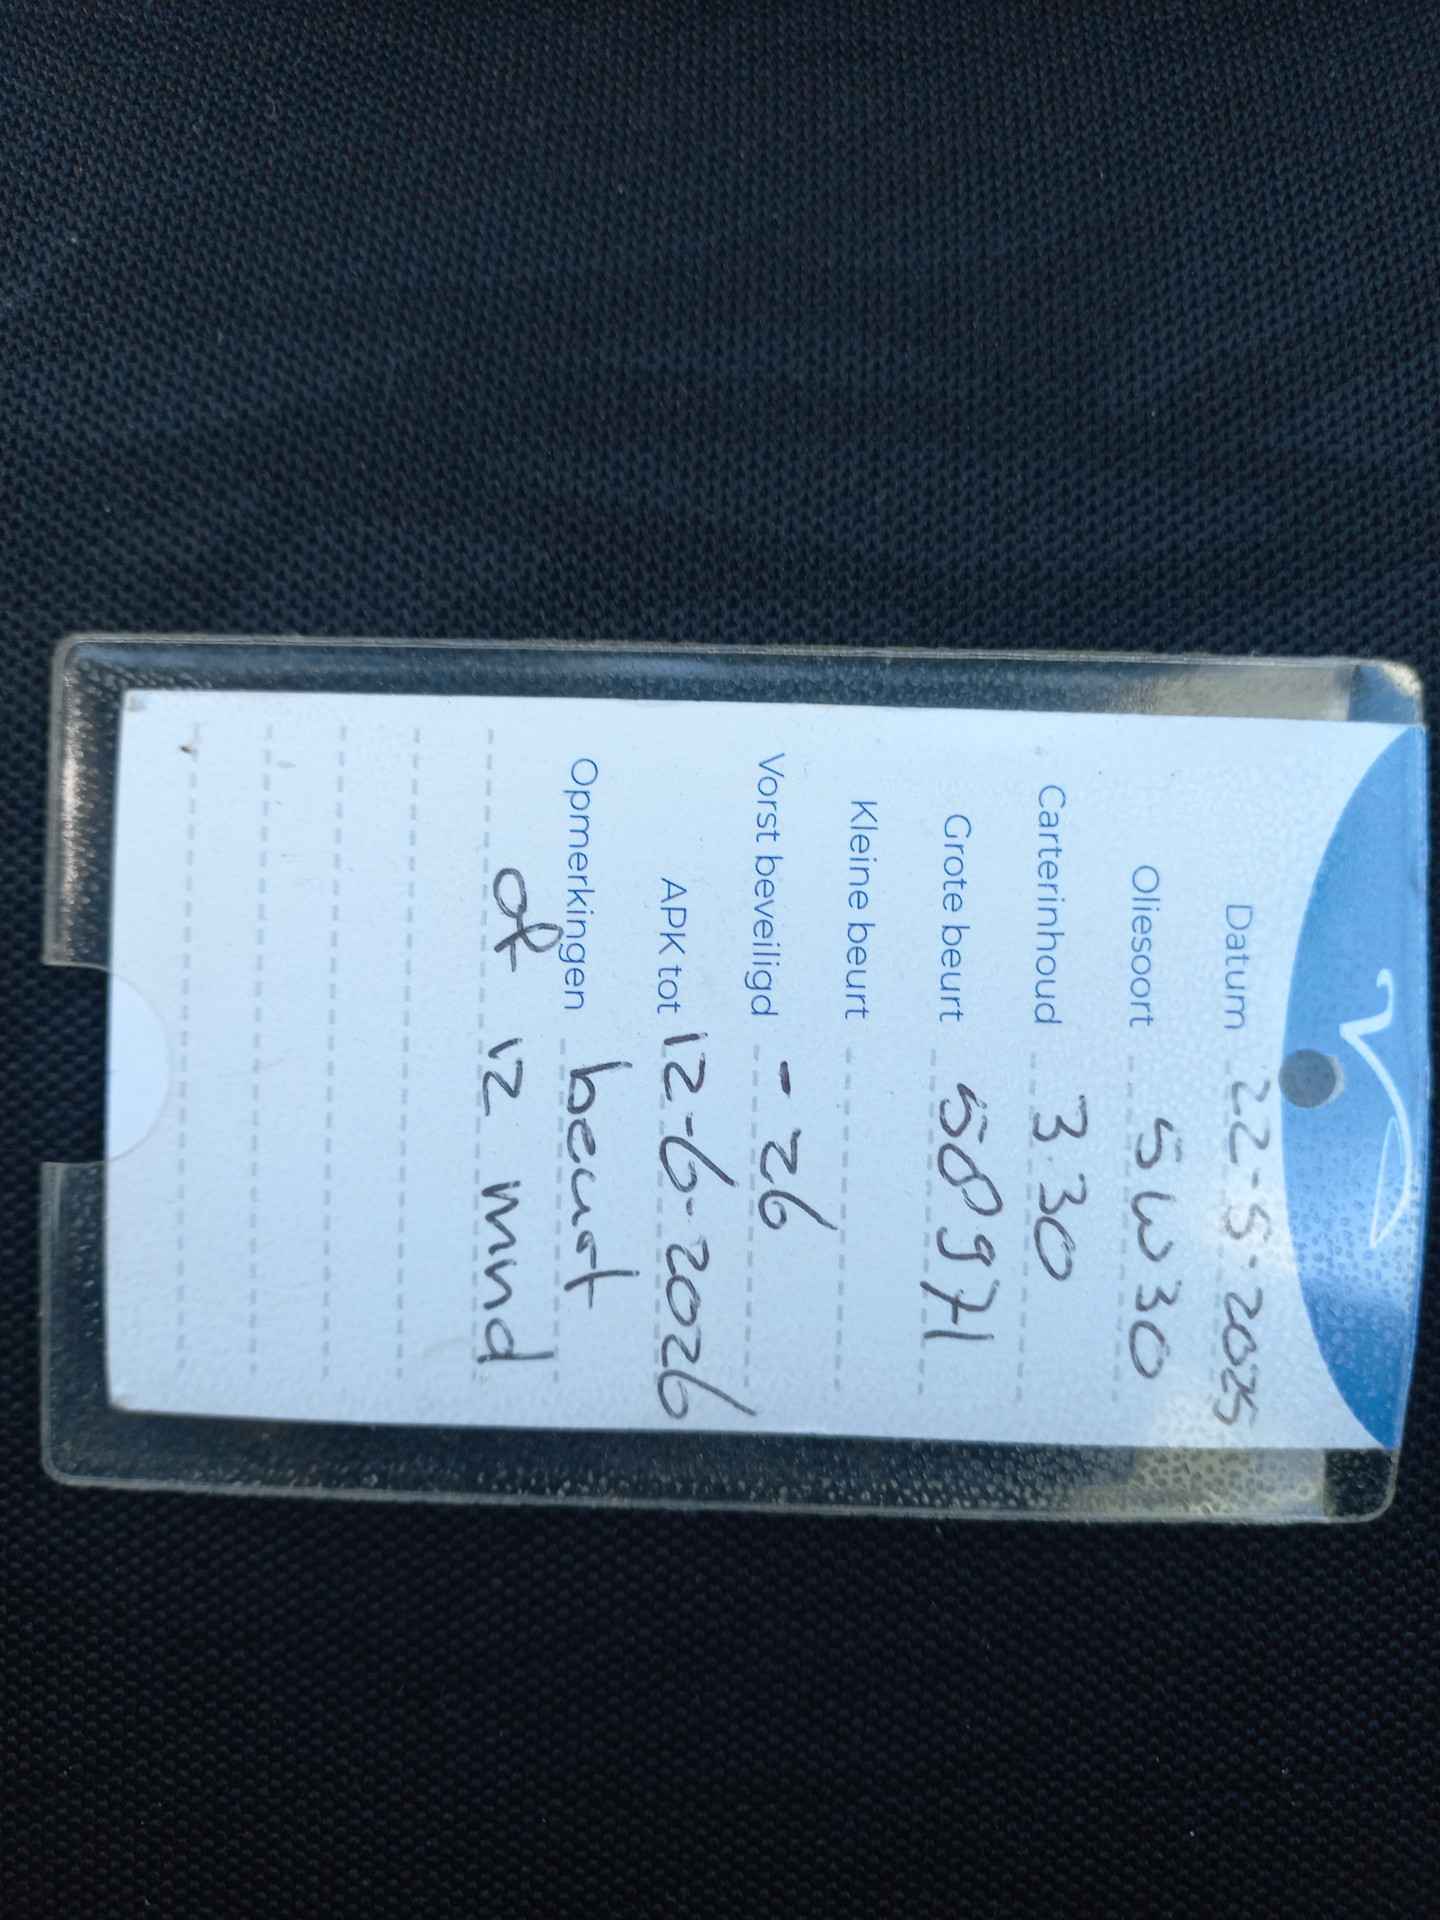 Datum 22-5-2025
Oliesoort 5W30
Carterinhoud 3.30
Grote beurt 58971
Kleine beurt
Vorst beveiligd -26
APK tot 12-6-2026
Opmerkingen beurt
of 12 mnd